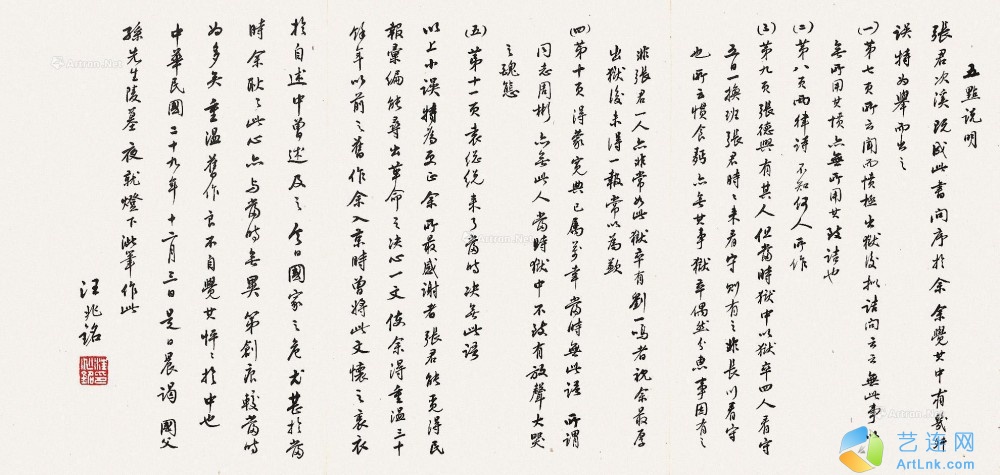 五點說明
張君次溪既成此書問序於余余覺其中有幾許
誤特為舉而出之
(一)第七頁所云聞而憤極出獄後擬詰問云云無此事
無所用其憤亦無所用其詰也
(二)第八頁兩律詩不知何人所作
(三)第九頁張德興有其人但當時獄中以獄卒四人看守
五日一換班張君時時來看守則有之非長川看守
也所云饋食粥亦無其事獄卒偶然分惠事固有之
非張君一人亦非常如此獄卒有劉一鳴者視余最厚
出獄後未得一報常以為歉
(四)第十頁得蒙寬典已屬萬幸當時無此語所謂
同志周彬亦無此人當時獄中不致有放聲大哭
之醜態
(五)第十一頁袁總統來了當時決無此語
以上小誤特為更正余所最感謝者張君能覓得民
報彙編能尋出革命之決心一文使余得重溫三十
餘年以前之舊作余入京時曾將此文懷之裏衣
於自述中曾述及之今日國家之危尤甚於當
時余耿耿此心亦與當時無異第創痕較當時
為多矣重溫舊作良不自覺其怦怦於中也
中華民國二十九年十二月三日是日晨謁國父
孫先生陵墓夜就燈下泚筆作此
汪兆銘
艺连网
ArtLnk.com
AstronNet